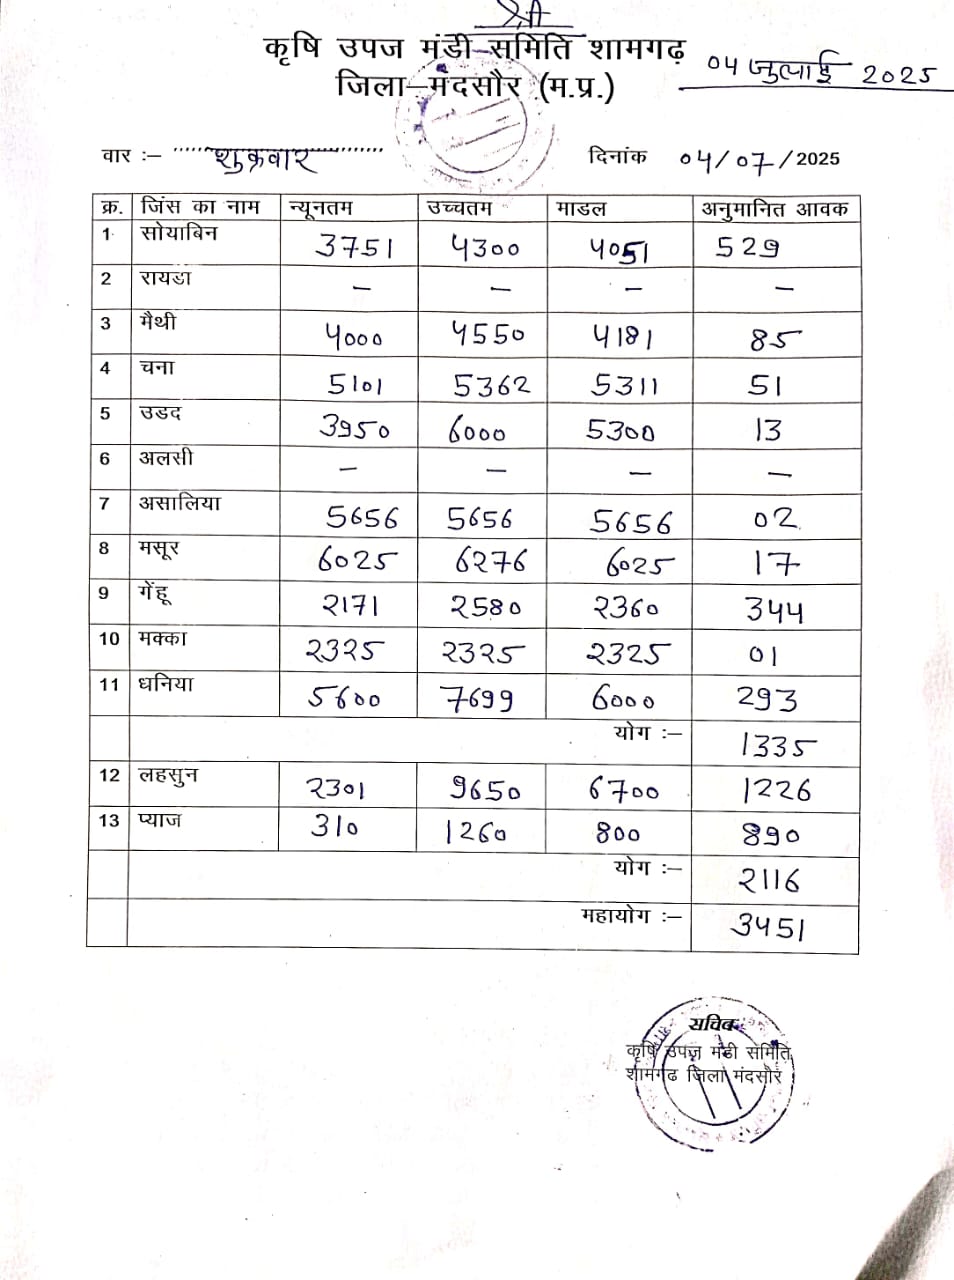 श्री
कृषि उपज मंडी समिति शामगढ़
जिला–मंदसौर (म.प्र.)
04 जुलाई 2025
वार :– शुक्रवार दिनांक 04/07/2025
क्र. जिंस का नाम न्यूनतम उच्चतम माडल अनुमानित आवक
1 सोयाबिन 3751 4300 4051 529
2 रायडा – – – –
3 मैथी 4000 4550 4181 85
4 चना 5101 5362 5311 51
5 उडद 3950 6000 5300 13
6 अलसी – – – –
7 असालिया 5656 5656 5656 02
8 मसूर 6025 6276 6025 17
9 गेंहू 2171 2580 2360 344
10 मक्का 2325 2325 2325 01
11 धनिया 5600 7699 6000 293
योग :– 1335
12 लहसुन 2301 9650 6700 1226
13 प्याज 310 1260 800 890
योग :– 2116
महायोग :– 3451
सचिव
कृषि उपज मंडी समिति
शामगढ जिला मंदसौर